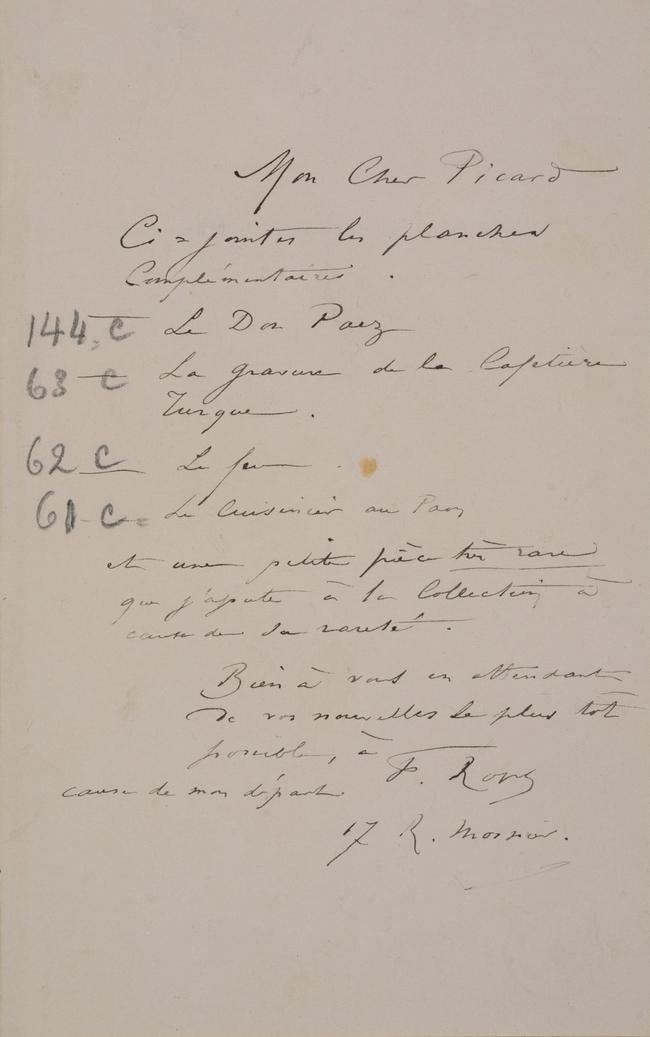 Mon Cher Picard
Ci=jointes les planches
Complémentaires.
144.C Le Don Paez
63 C La gravure de la Cafetière
Turque.
62 C Le
61 C. Le Cuisinier au
et une petite pièce très rare
que j'ajoute à la Collection à
cause de sa rareté.
Bien à vous en attendant
de vos nouvelles le plus tôt
possible, à
F.
cause de mon départ.
17 R.